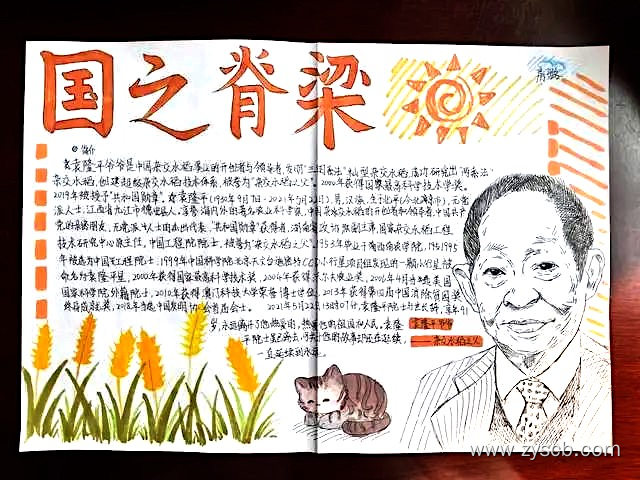 国之脊梁
简介
袁隆平爷爷是中国杂交水稻事业的开创者与领导者,发明"三系法"籼型杂交水稻,成功研究出"两系法"
杂交水稻,创建超级杂交水稻技术体系,被誉为"杂交水稻之父"。2000年获得国家最高科学技术奖。
2019年被授予"共和国勋章"。袁隆平(1930年9月7日-2021年5月22日),男,汉族,生于北平(今北京市),无党
派人士,江西省九江市德安县人。享誉海内外的著名农业科学家,中国杂交水稻事业的开创者和领导者,中国共产
党的亲密朋友,无党派人士的杰出代表,"共和国勋章"获得者,湖南省政协原副主席,国家杂交水稻工程
技术研究中心原主任,中国工程院院士,被誉为"杂交水稻之父"。1953年毕业于西南农学院,1995
年被选为中国工程院院士,1999年中国科学院北京天文台施密特CCD小行星项目组发现的一颗小行星被
命名为袁隆平星,2000年获得国家最高科学技术奖,2004年获得沃尔夫农业奖,2006年4月当选美国
国家科学院外籍院士,2010年获得澳门科技大学荣誉博士学位,2013年获得第四届中国消除贫困奖
终身成就奖,2018年当选中国发明协会首届会士。2021年5月22日13时07分,袁隆平院士与世长辞,享年91
岁,永远离开了他热爱的,热爱他的祖国和人民,袁隆
平院士虽已离去,
一直延续到永远
袁隆平爷爷
——杂交水稻之父
www.zyscb.com